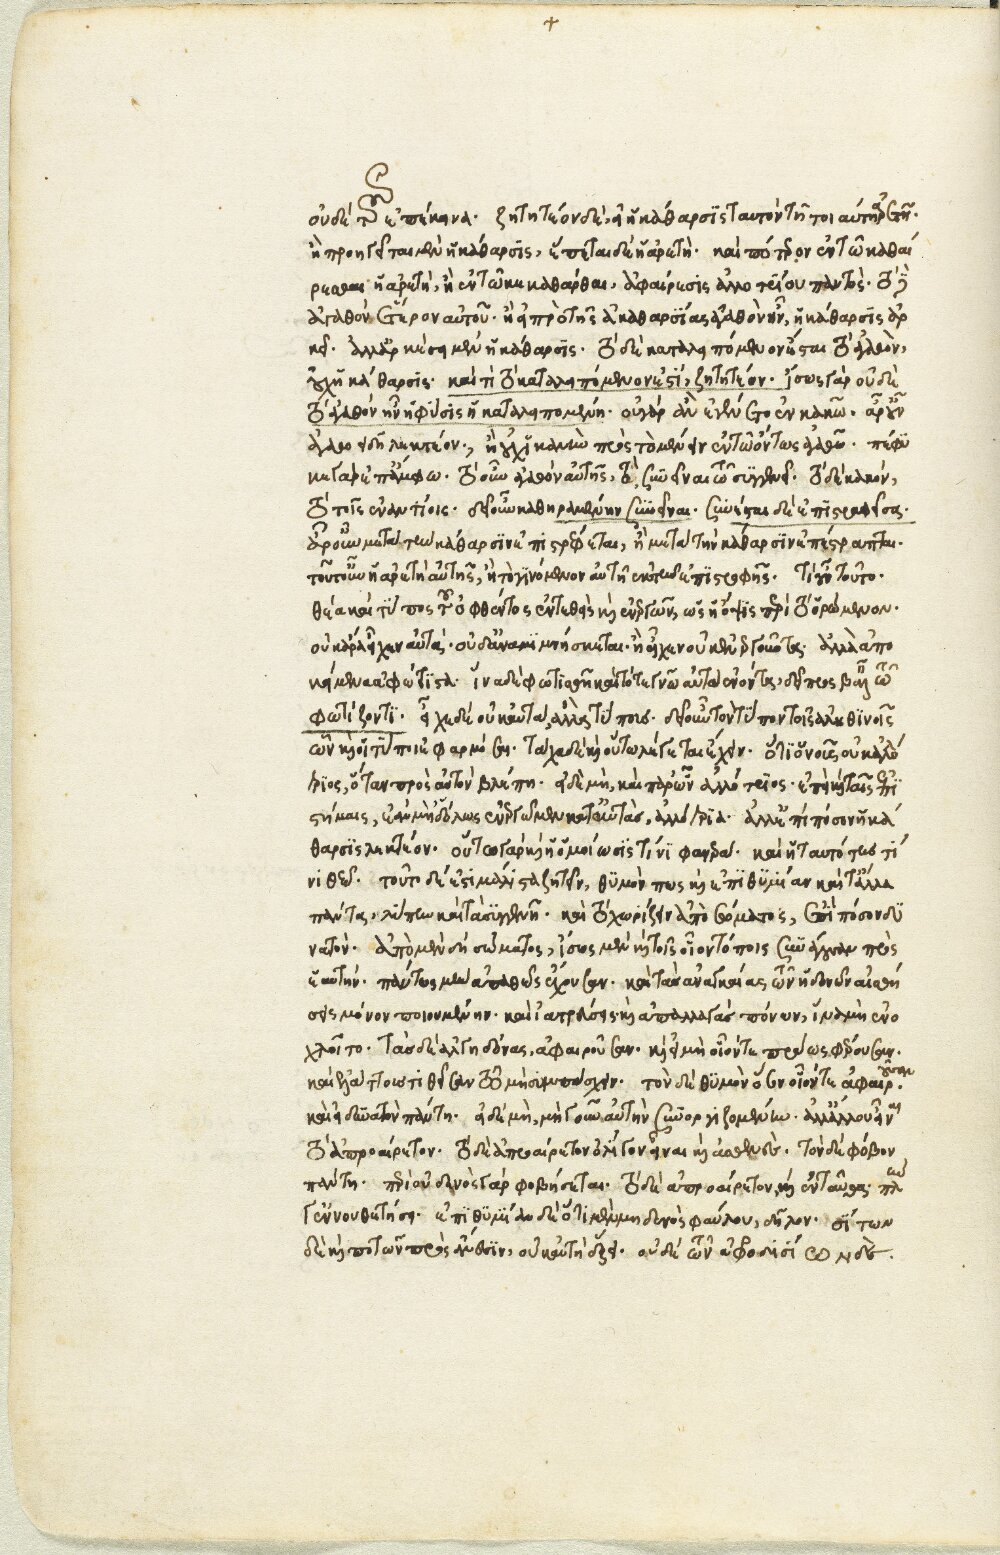 οὐδὲ τοῦ ἐπέκεινα· ζητητέον δὲ, εἰ ἡ κάθαρσις ταυτὸν τῇ τοιαύτῃ ἀρετῇ·
ἢ προηγεῖται μὲν ἡ κάθαρσις, ἕπεται δὲ ἡ ἀρετή· καὶ πότερον ἐν τῶ καθαί
ρεσθαι ἡ ἀρετὴ, ἢ ἐν τῶ κεκαθάρθαι· ἀφαίρεσις ἀλλοτρίου παντός· τὸ δὲ
ἀγαθὸν ἕτερον αὐτοῦ· ἢ εἰ πρὸ τῆς ἀκαθαρσίας ἀγαθὸν ἦν, ἡ κάθαρσις ἀρ
κεῖ· ἀλλ' ἀρκέσει μὲν ἡ κάθαρσις· τὸ δὲ καταλειπόμενον ἔσται τὸ ἀγαθὸν,
οὐχ ἡ κάθαρσις· καὶ τί τὸ καταλειπόμενον ἐστὶ, ζητητέον· ἴσως γὰρ οὐδὲ
τὸ ἀγαθὸν ἦν ἡ φύσις ἡ καταλειπομένη· οὐ γὰρ ἂν ἐγένετο ἐν κακῶ· ἆρ' οὖν
ἀγαθοειδῆ λεκτέον, ἢ οὐχ ἱκανὴν πρὸς τὸ μένειν ἐν τῶ ὄντως ἀγαθῶ· πέφυ
κε γὰρ ἐπ' ἄμφω· τὸ οὖν ἀγαθὸν αὐτῆς, τὸ συνεῖναι τῶ συγγενεῖ· τὸ δὲ κακὸν,
τὸ τοῖς ἐναντίοις· δεῖ οὖν καθηραμένην συνεῖναι· συνέσται δὲ ἐπιστραφεῖσα·
ἆρ' οὖν μετὰ τὴν κάθαρσιν ἐπιστρέφεται, ἢ μετὰ τὴν κάθαρσιν ἐπέστραπται·
τοῦτ' οὖν ἡ ἀρετὴ αὐτῆς, ἢ τὸ γινόμενον αὐτῇ ἐκ τῆς ἐπιστροφῆς· τί οὖν τοῦτο·
θέα καὶ τύπος τοῦ ὀφθέντος ἐντεθεὶς καὶ ἐνεργῶν, ὡς ἡ ὄψις περὶ τὸ ὁρώμενον·
οὐκ ἄρα εἶχεν αὐτὰ· οὐδ' ἀναμιμνήσκεται· ἢ εἶχεν οὐκ ἐνεργοῦντα· ἀλλὰ ἀπο
κείμενα ἀφώτιστα· ἵνα δὲ φωτισθῇ καὶ τότε γνῶ αὐτὰ ἐνόντα, δεῖ προσβαλεῖν τῶ
φωτίζοντι· εἶχε δὲ οὐκ αὐτὰ, ἀλλὰ τύπους· δεῖ οὖν τὸν τύπον τοῖς ἀληθινοῖς
ὧν καὶ οἱ τύποι ἐφαρμόσαι· τάχα δὲ καὶ οὕτω λέγεται ἔχειν· ὅτι ὁ νοῦς οὐκ ἀλλό
τριος, ὅταν πρὸς αὐτὸν βλέπῃ· εἰ δὲ μὴ, καὶ παρὼν ἀλλότριος· ἐπεὶ καὶ ταῖς ἐπι
στήμαις, ἐὰν μὴ δ' ὅλως ἐνεργῶμεν κατ' αὐτὰς, ἀλλότρια· ἀλλ' ἐπὶ πόσον ἡ κά
θαρσις λεκτέον· οὕτω γὰρ καὶ ἡ ὁμοίωσις τίνι φανερὰ· καὶ ἡ ταυτότης τί
νι θεῶ· τοῦτο δέ ἐστι μάλιστα ζητεῖν, θυμὸν πῶς καὶ ἐπιθυμίαν καὶ τἄλλα
πάντα, λύπην καὶ τὰ συγγενῆ· καὶ τὸ χωρίζειν ἀπὸ σώματος, ἐπὶ πόσον δυ
νατόν· ἀπὸ μὲν δὴ σώματος, ἴσως μὲν καὶ τοῖς οἷον τόποις συνάγουσαν πρὸς
ἑαυτήν· πάντως μὴν ἀπαθῶς ἔχουσαν· καὶ τὰς ἀναγκαίας τῶν ἡδονῶν αἰσθή
σεις μόνον ποιουμένην· καὶ ἰατρεύσεις καὶ ἀπαλλαγὰς πόνων, ἵνα μὴ ἐνο
χλοῖτο· τὰς δὲ ἀλγηδόνας, ἀφαιροῦσαν· καὶ εἰ μὴ οἷόν τε πράως φέρουσαν·
καὶ ἐλάττους τιθεῖσαν τῶ μὴ συμπάσχειν· τὸν δὲ θυμὸν ὅσον οἷόν τε ἀφαιροῦσαν·
καὶ εἰ δυνατὸν πάντη· εἰ δὲ μὴ, μὴ γοῦν αὐτὴν συνοργιζομένην· ἀλλ' ἄλλου εἶναι
τὸ ἀπροαίρετον· τὸ δὲ ἀπροαίρετον ὀλίγον εἶναι καὶ ἀσθενές· τὸν δὲ φόβον
πάντη· περὶ οὐδενὸς γὰρ φοβήσεται· τὸ δὲ ἀπροαίρετον, καὶ ἐνταῦθα· πλὴν
γ' ἐν νουθετήσει· ἐπιθυμίαν δὲ ὅτι μὲν μηδενὸς φαύλου, δῆλον· σίτων
δὲ καὶ ποτῶν πρὸς ἄνεσιν, οὐκ αὐτὴ ἕξει· οὐδὲ τῶν ἀφροδισίων δὲ·